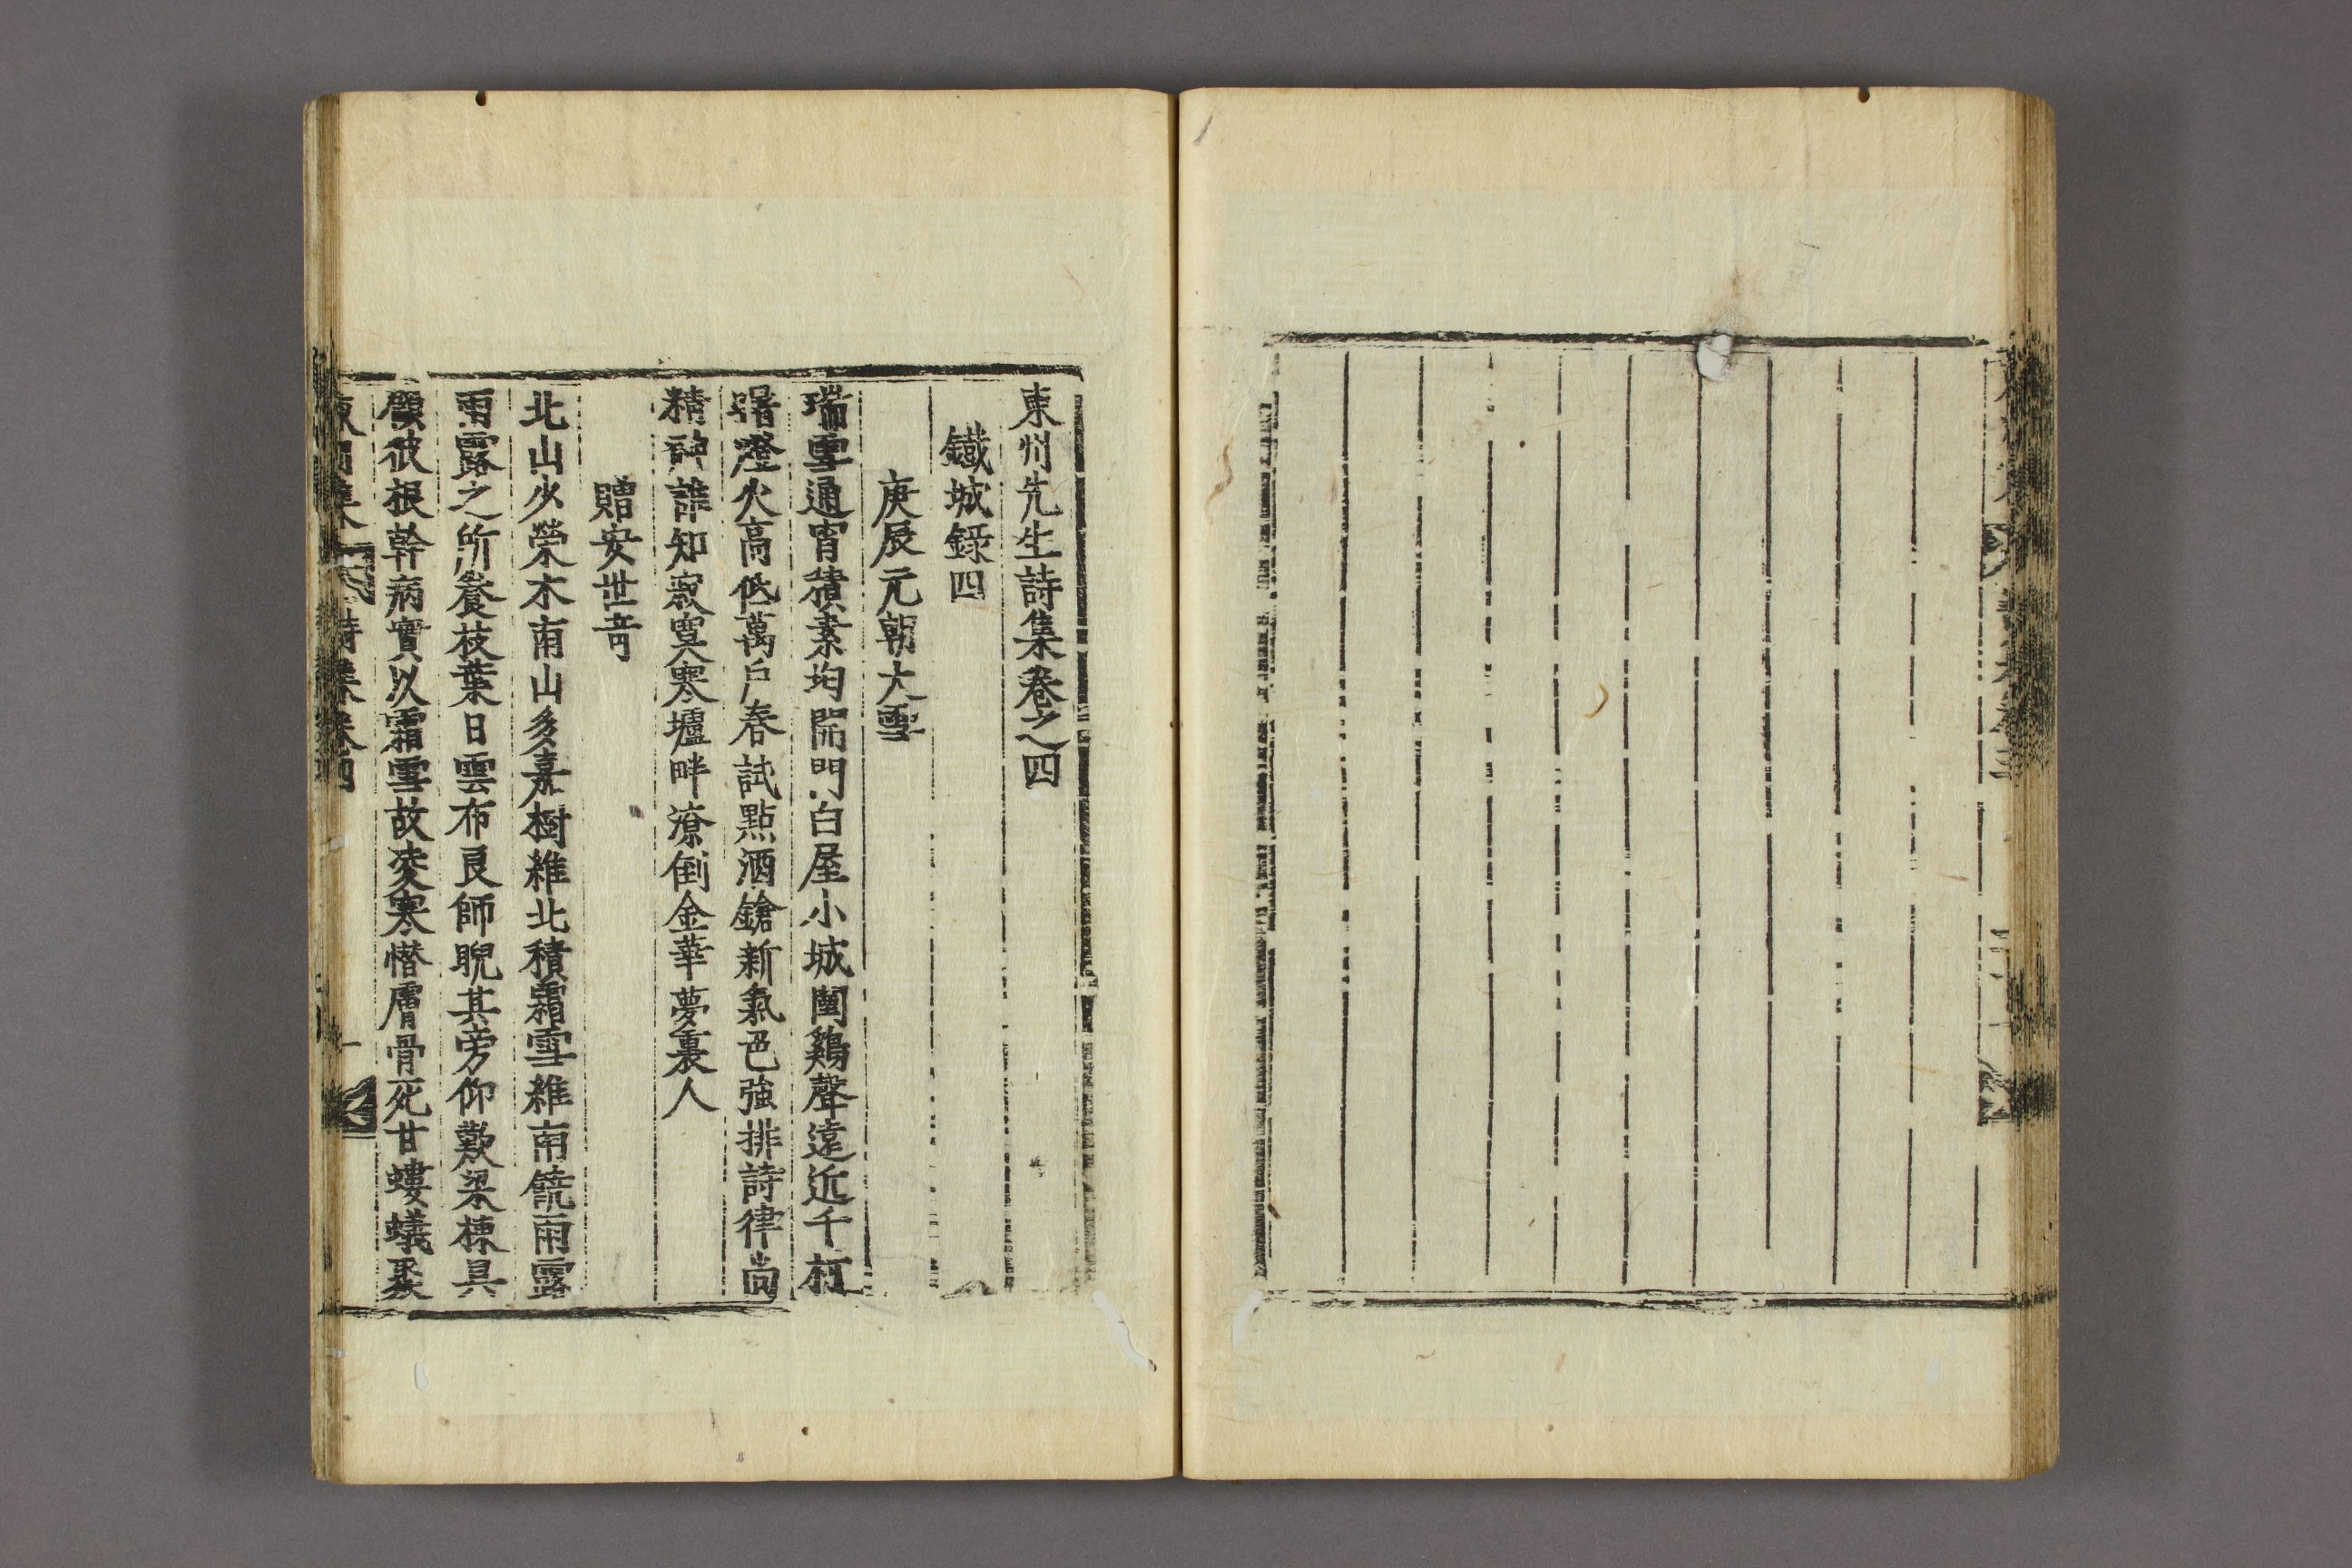 東州先生詩集卷之四
鐵城錄四
庚辰元朝大雪
瑞雪通宵積素均開門白屋小城闉鷄聲遠近千村
曙燈火高低萬戶春試點酒鎗新氣色強排詩律尚
精神誰知寂寞寒壚畔潦倒金華夢裏人
贈安世奇
北山少榮木南山多嘉樹維北積霜雪維南饒雨露
雨露之所養枝葉日雲布良師睨其旁仰歎梁棟具
顧彼根幹病實以霜雪故凌寒憯膚骨死甘螻蟻聚